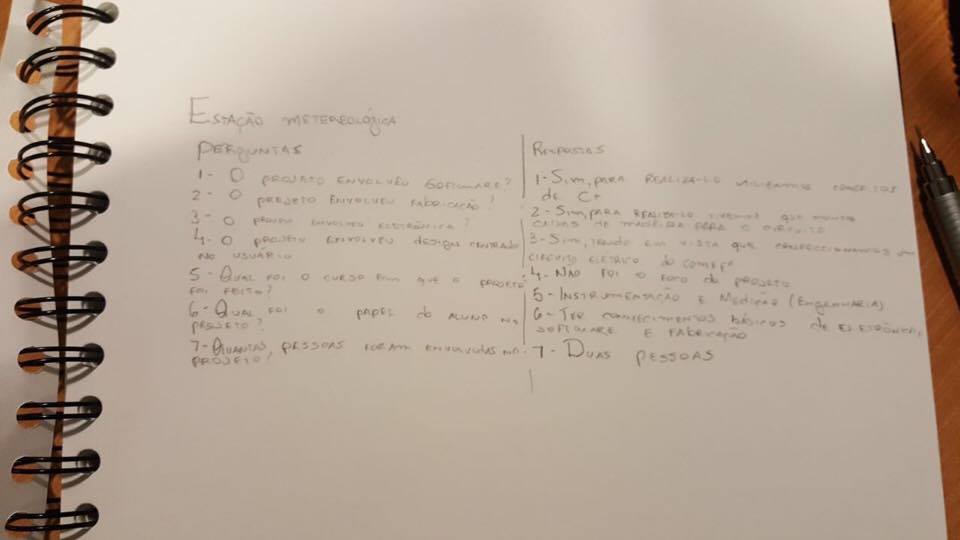 Estação Metereológica
Perguntas
1- O projeto envolveu software?
2- O projeto envolveu fabricação?
3- O projeto envolveu eletrônica?
4- O projeto envolveu design centrado
no usuário
5- Qual foi o curso em que o projeto
foi feito?
6- Qual foi o papel do aluno no
projeto?
7- Quantas pessoas foram envolvidas no
projeto?
Respostas
1- Sim, para realiza-lo utilizamos conceitos
de C+
2- Sim, para realiza-lo tivemos que montar
caixas de madeira para o circuito
3- Sim, tendo em vista que confeccionamos um
circuito elétrico do começo
4- Não foi o foco do projeto
5- Instrumentação e Medição (Engenharia)
6- Ter conhecimentos básicos de eletrônica,
software e fabricação
7- Duas pessoas